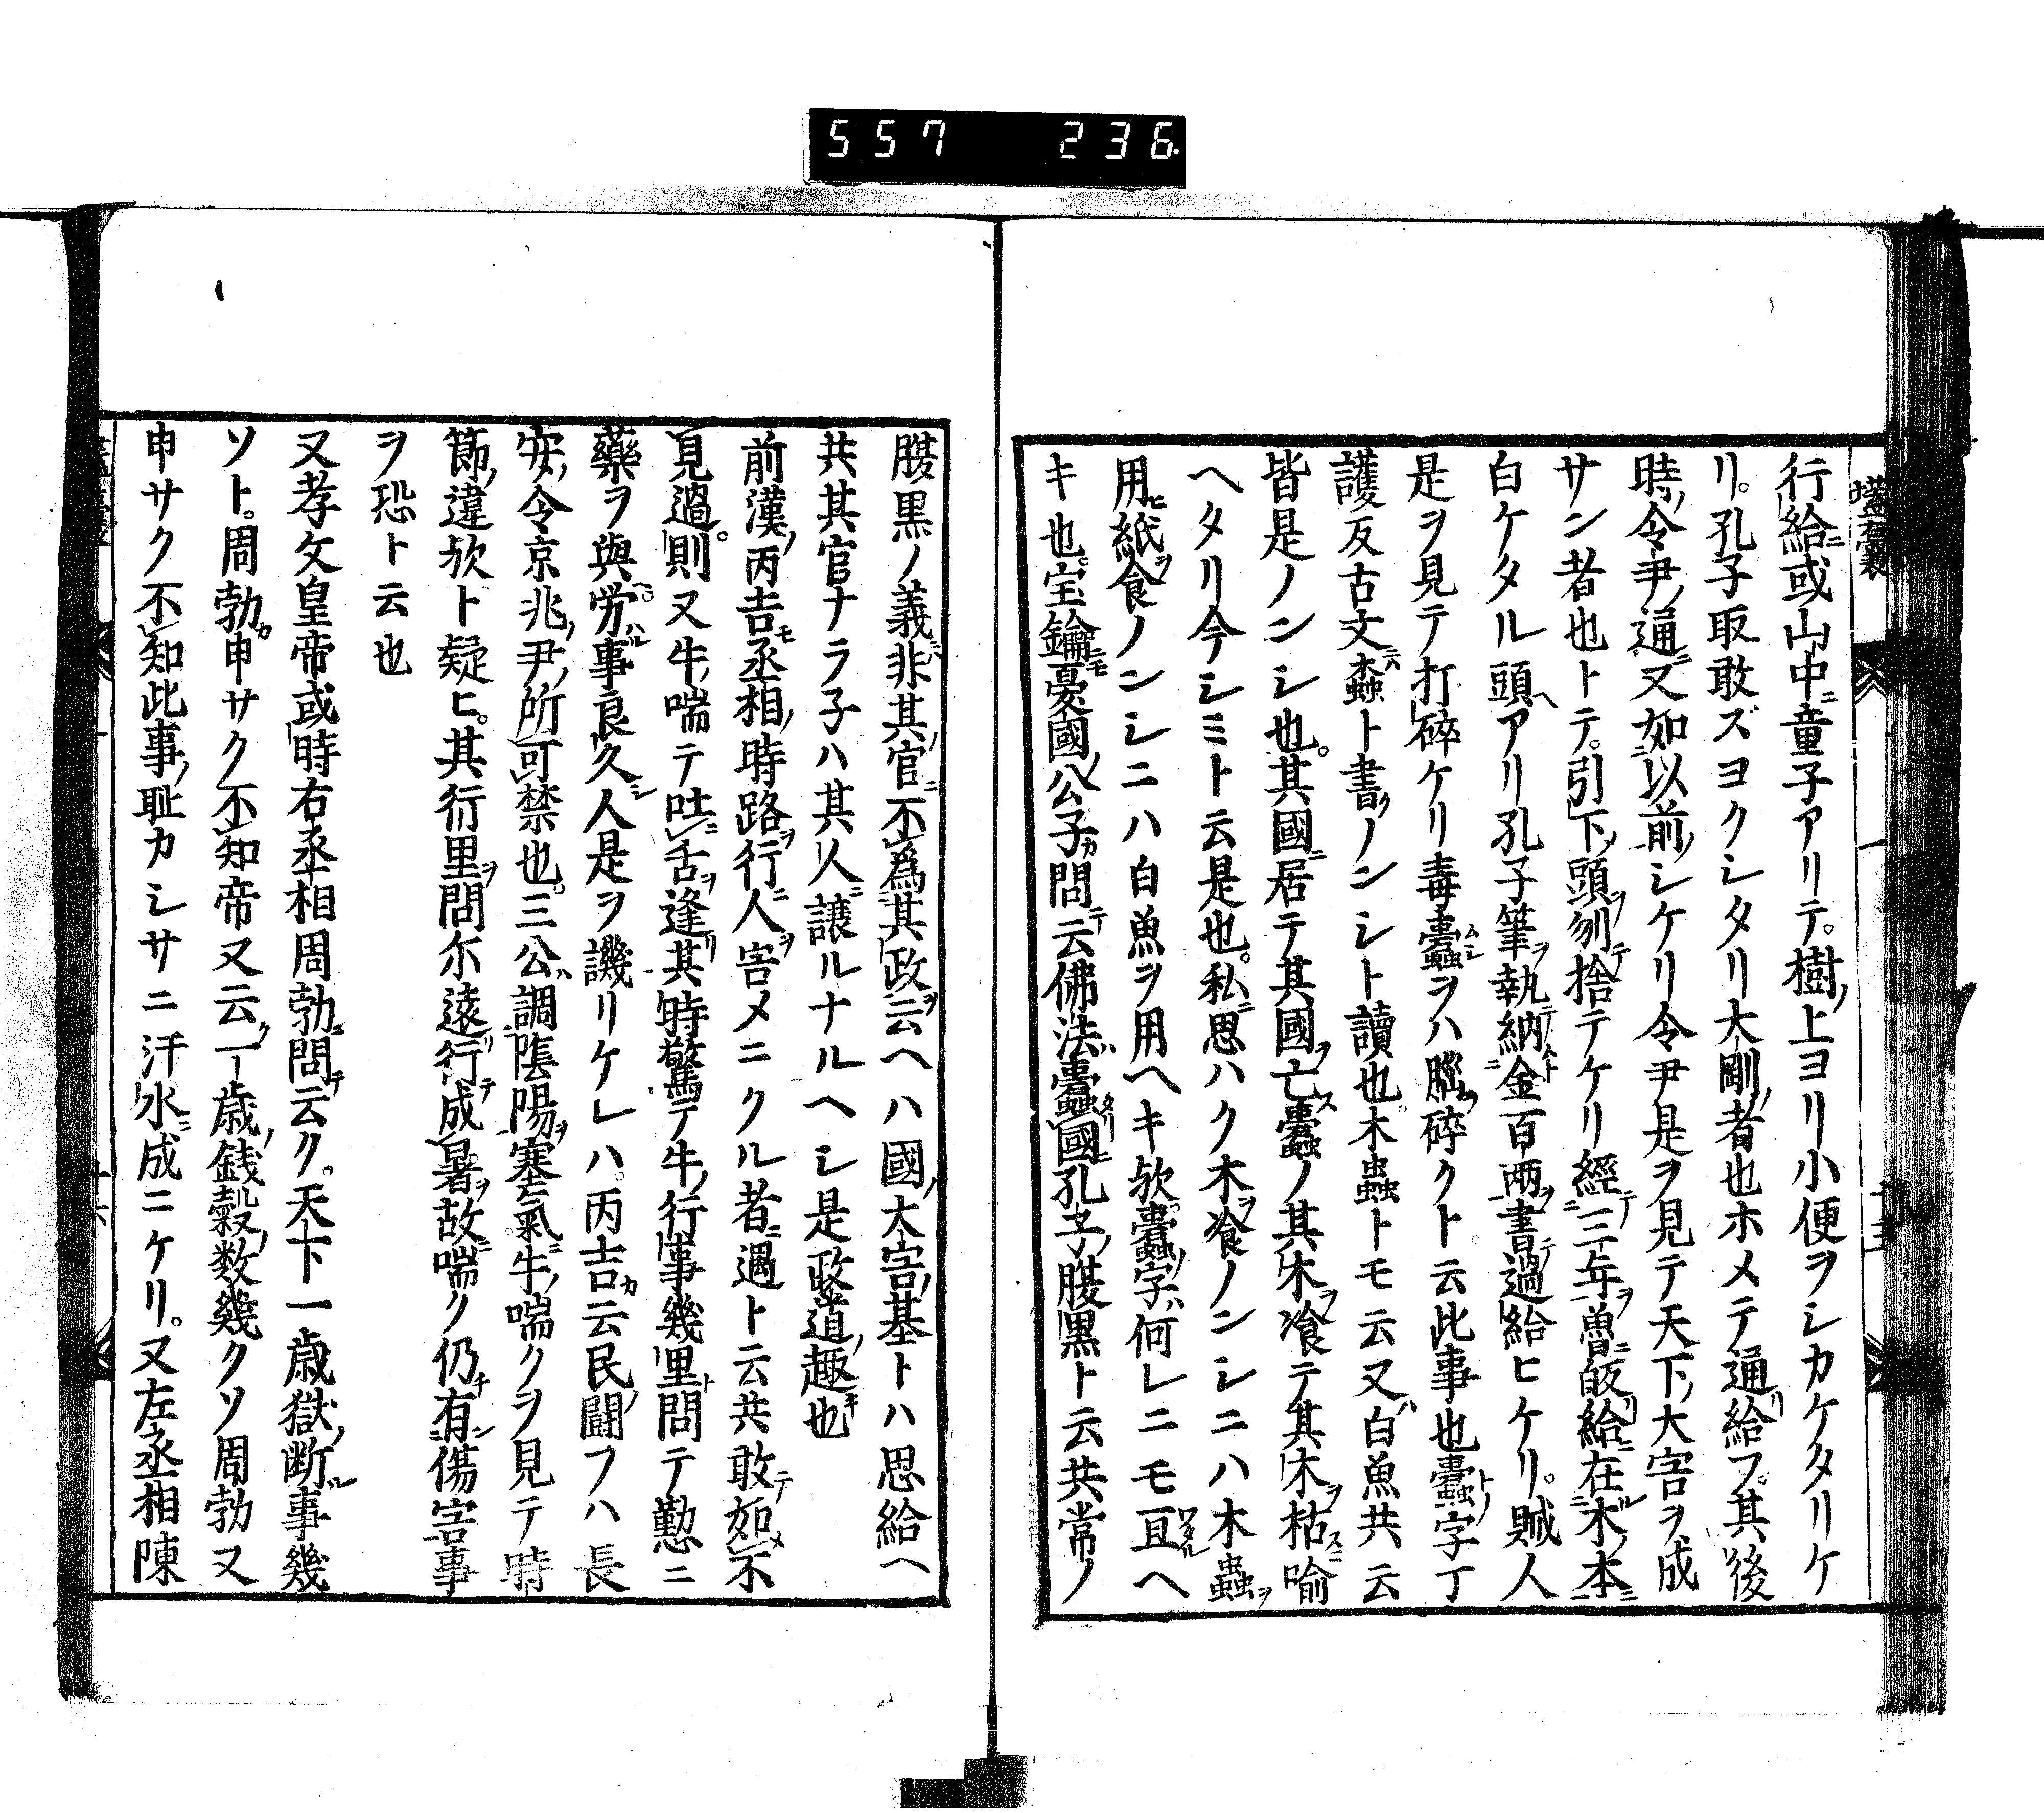 557 236.
壒囊
行給ニ或山中ニ童子アリテ。樹ノ上ヨリ小便ヲシカケタリケ
リ。孔子取敢ズヨクシタリ大剛ノ者也ホメテ通リ給フ。其後
時ノ令尹ノ通ニ又如ニ以前ノシケリ令尹是ヲ見テ天下ノ大害ヲ成
サン者也トテ。引下ノ頭ヲ刎テ捨テケリ經テ三年ヲ魯ニ皈リ給ニ在ル木ノ本ニ
白ケタル頭ヘアリ孔子筆ヲ執テ納ムト金百兩ヲ書テ過給ヒケリ。賊人
是ヲ見テ打碎ケリ毒蠹ムシヲハ腦ヲ碎クト云此事也蠹トノ字丁
護反古文ニハ螙ト書クノンシト讀也。木蟲トモ云又ハ白魚共云
皆是ノンシ也。其國ニ居テ其國ヲ亡ス蠹ノ其木ヲ飡テ其木ヲ枯スニ喻
ヘタリ今シミト云是也。私ニ思ハク木ヲ飡ノンシニハ木蟲ヲ
用ヒ紙ヲ食ノンシニハ白魚ヲ用ヘキ欤。蠹ノ字ハ何レニモ亘ワタルヘ
キ也。宝鑰ニモ憂國ノ公子カ問テ云佛法ハ蠹タリ國ニ孔子ノ腹黒ト云共常ノ
腹黒ノ義ニハ非其ノ官ニ不為其ノ政ヲ云ヘハ國ノ大害ノ基トハ思給ヘ
共其官ナラ子ハ其人ニ譲ルナルヘシ是政道ノ趣キ也
前漢ノ丙吉モ丞相ノ時路ヲ行ニ人ヲ害メニクル者ニ遇ト云共敢テ如メ不
見過。則又牛ノ喘テ吐ニ舌ヲ逢リ其時驚テ牛ノ行事幾里ト問テ懃ニ
藥ヲ與ヘ。労ハル事良久シ人是ヲ譏リケレハ。丙吉カ云民ノ鬪フハ長
安ノ令京兆ノ尹ノ所可禁也。三公ハ調陰陽ヲ塞氣ニ牛ノ喘クヲ見テ時
節ノ違欤ト疑ヒ。其行里ヲ問尓遠リ行テ成暑ヲ。故ニ喘ク仍チ有ン傷害事
ヲ恐ト云也
又孝文皇帝或時右丞相周勃ニ問テ云ク。天下一歳ノ獄ノ断ル事幾
ソト。周勃カ申サク不知帝又云ク一歳ノ銭穀ノ数幾クソ周勃又
申サク不知此事ノ耻カシサニ汗水ニ成ニケリ。又左丞相陳